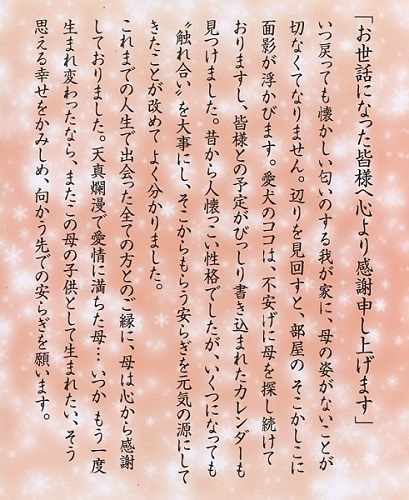 「お世話になった皆様へ心より感謝申し上げます」
いつ戻っても懐かしい匂いのする我が家に、母の姿がないことが
切なくてなりません。辺りを見回すと、部屋の そこかしこに
面影が浮かびます。愛犬のココは、不安げに母を探し続けて
おりますし、皆様との予定がびっしり書き込まれたカレンダーも
見つけました。昔から人懐っこい性格でしたが、いくつになっても
〝触れ合い〟を大事にし、そこからもらう安らぎを元気の源にして
きたことが改めて よく分かりました。
これまでの人生で出会った全ての方とのご縁に、母は心から感謝
しておりました。天真爛漫で愛情に満ちた母…いつか もう一度
生まれ変わったなら、またこの母の子供として生まれたい、そう
思える幸せをかみしめ、向かう先での安らぎを願います。